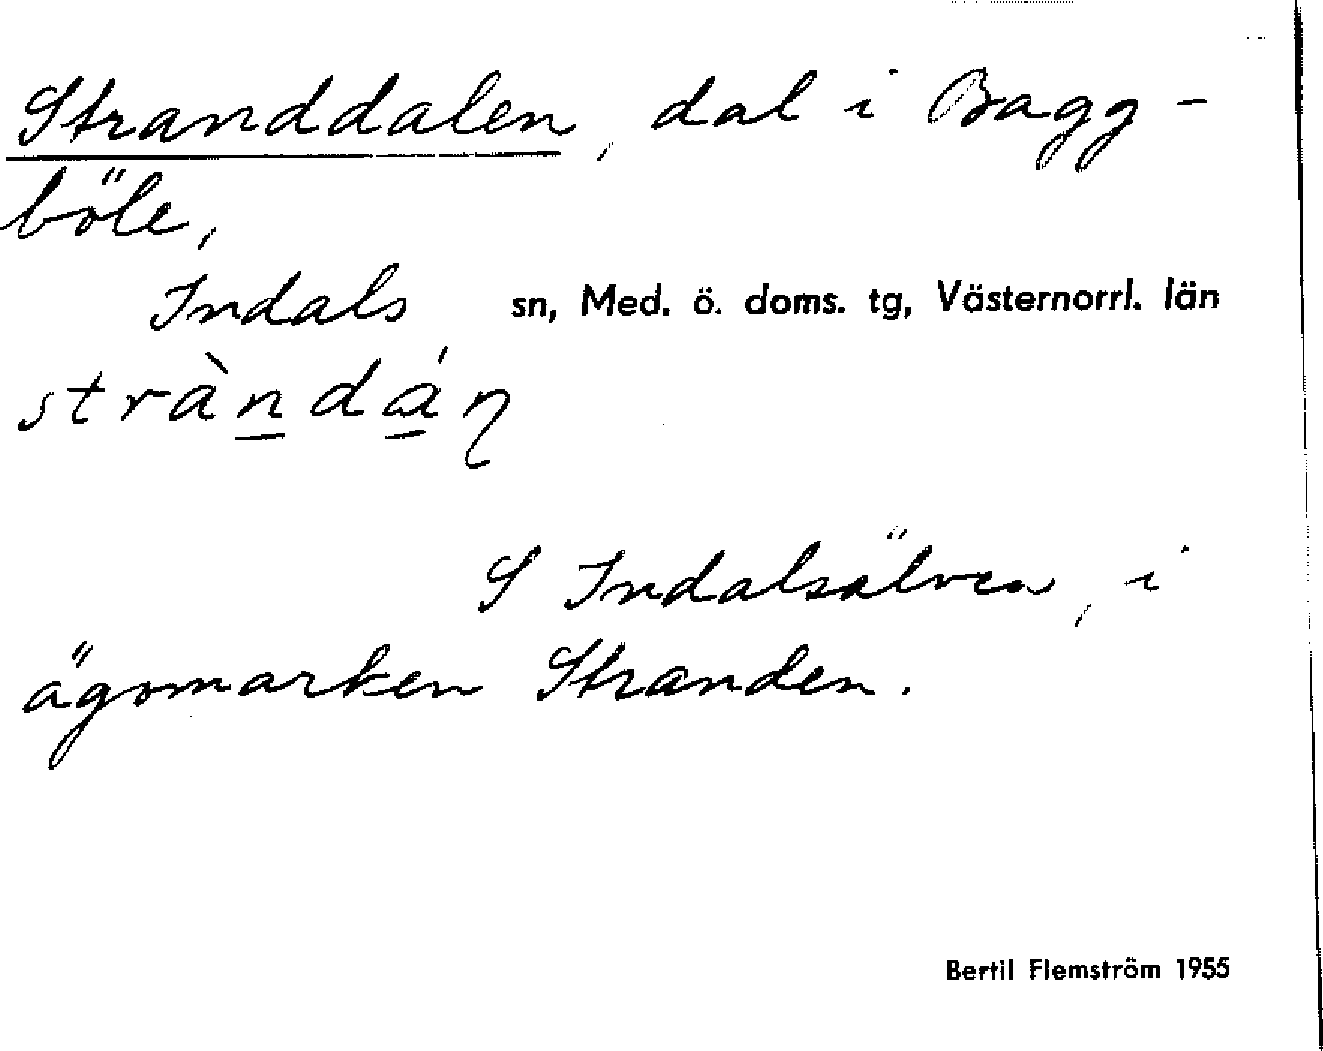 Stranddalen, dal i Bagg-
böle,
Indals sn, Med. ö. doms. tg, Västernorrl. län
stràn̲dá̲ɳ
S Indalsälven, i
ägomarken Stranden.
Bertil Flemström 1955